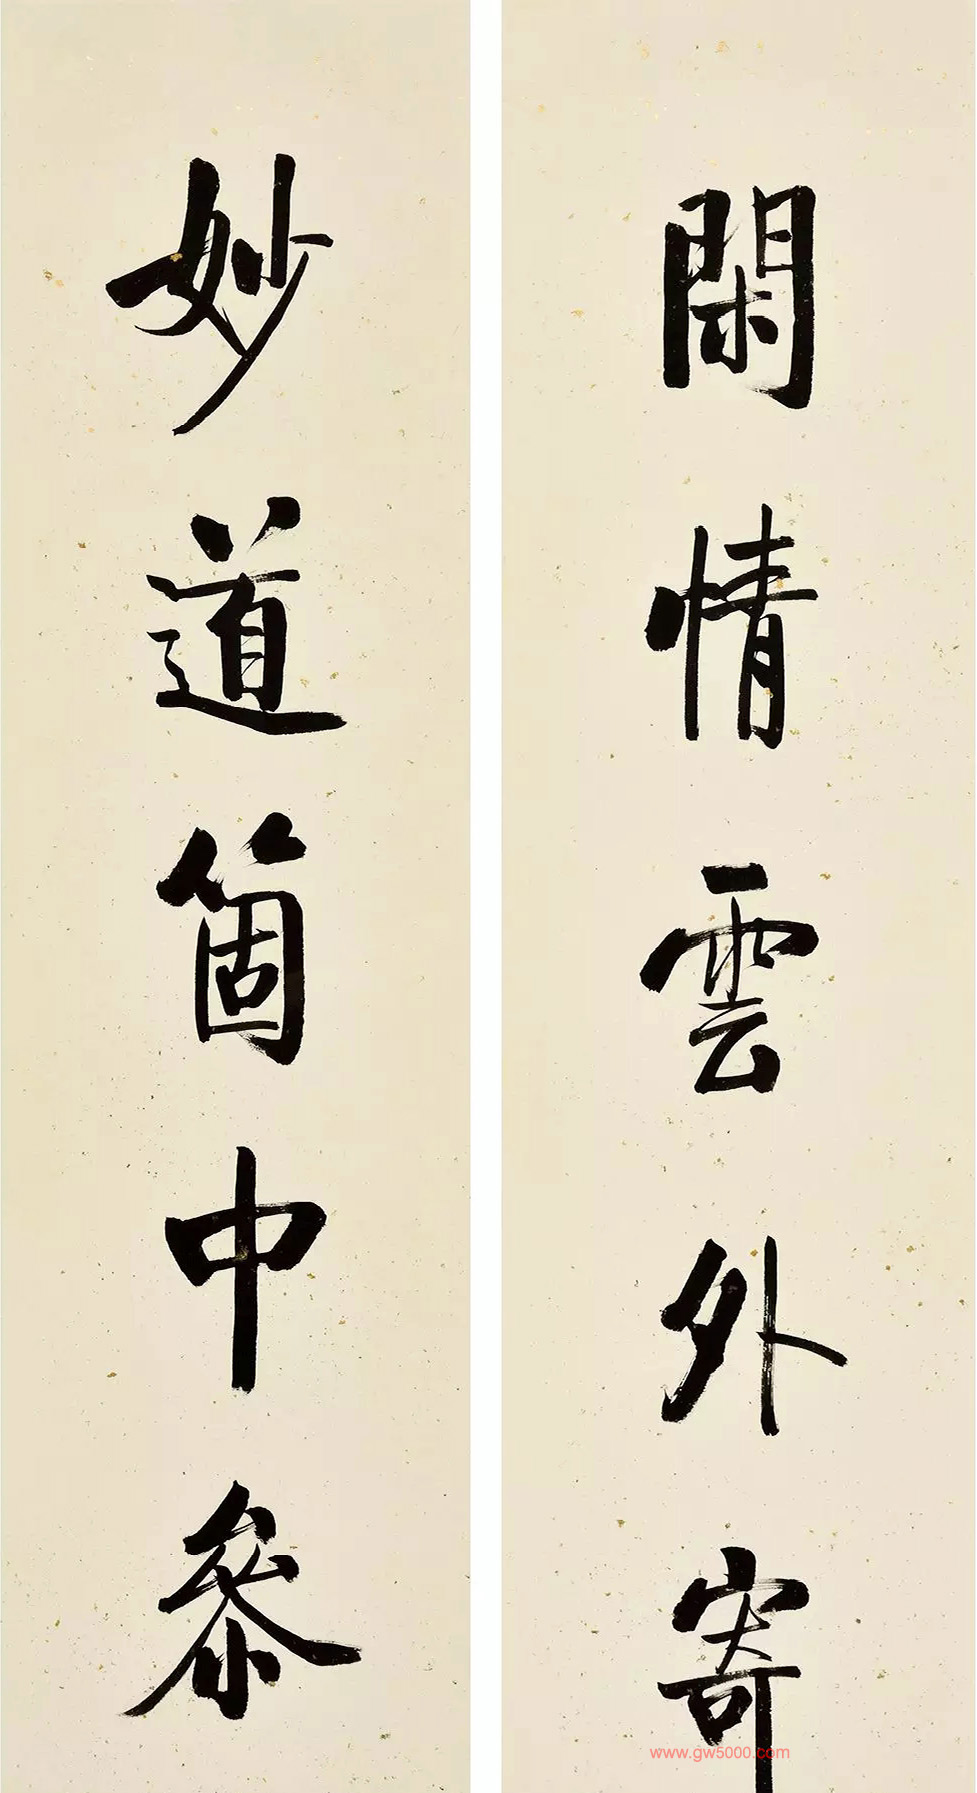 閑情雲外寄
妙道箇中参
www.gw5000.com